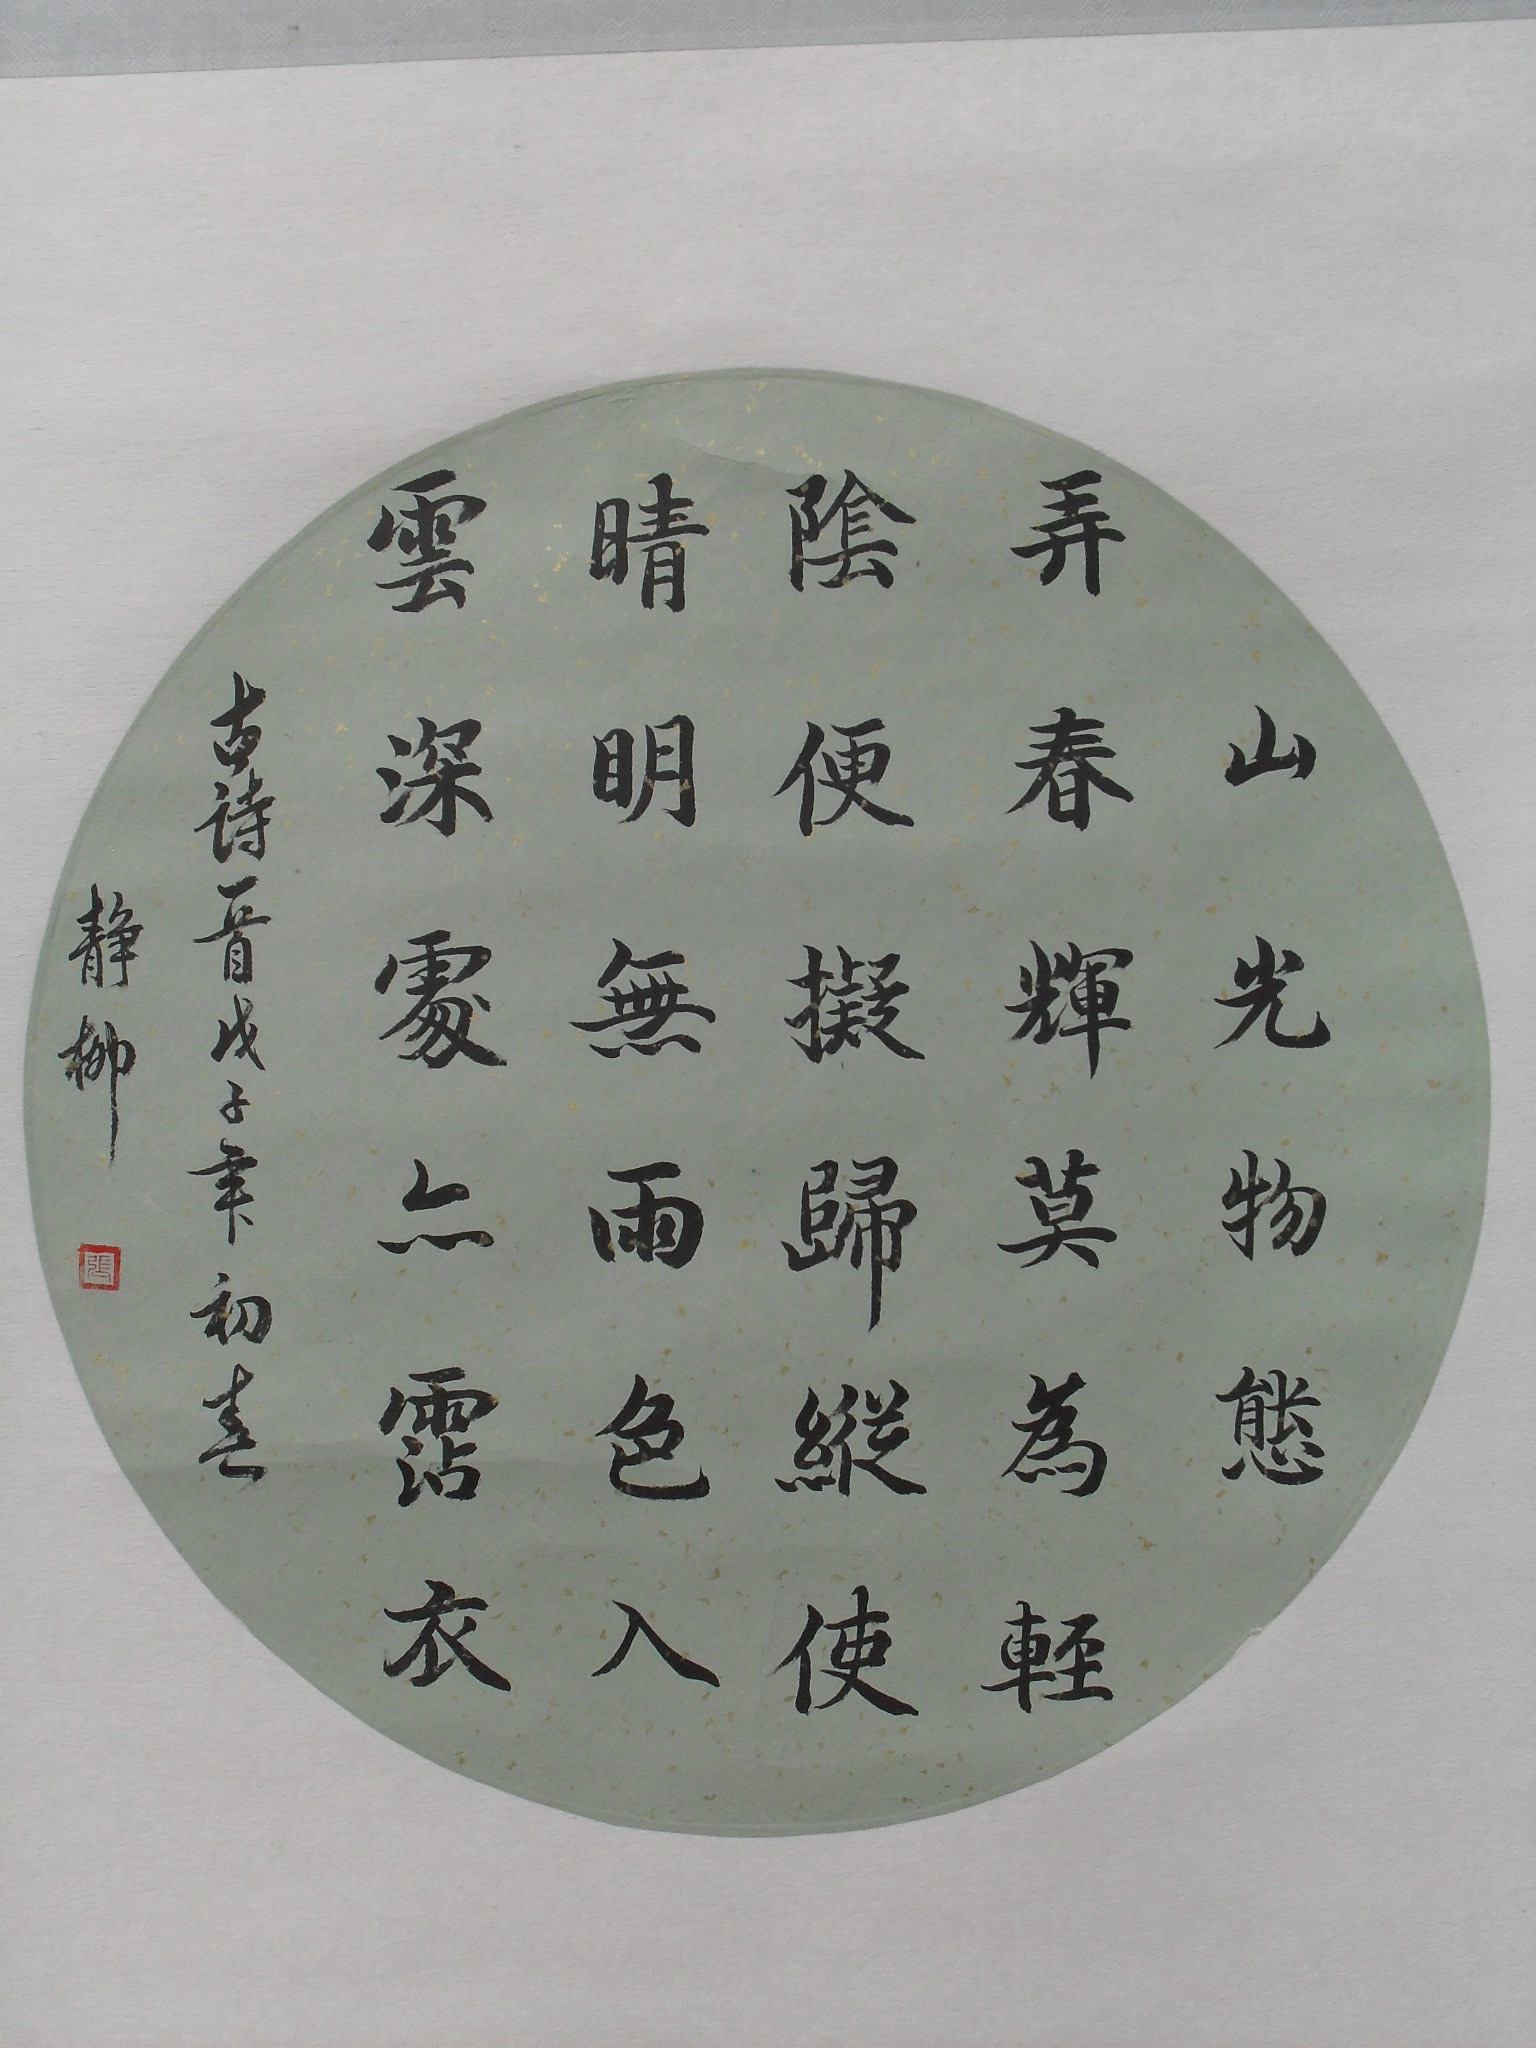 山光物態
弄春輝莫為輕
陰便擬歸縱使
晴明無雨色入
雲深處亦霑衣
古詩一首戊子年初春
静柳
張